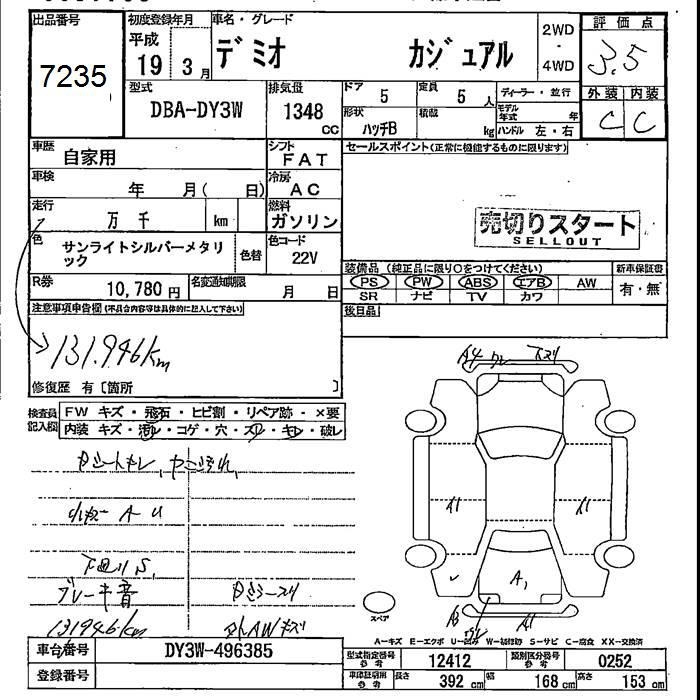 出品番号
7235
初度登録年月
平成
19 3月
車名・グレード
デミオ カジュアル
2WD
4WD
評価点
3.5
型式
DBA-DY3W
排気量
1348
cc
ドア 5
定員 5 人
ディーラー・並行
外装 内装
C C
形状
ハッチB
積載
kg
モデル年式 年
ハンドル 左・右
車歴
自家用
シフト
FAT
セールスポイント(正常に機能するものに限ります)
車検
年 月( 日)
冷房
AC
走行
万 千 km
燃料
ガソリン
売切りスタート
SELLOUT
色
サンライトシルバーメタリック
色替
色コード
22V
装備品 (純正品に限り○をつけてください)
新車保証書
PS PW ABS エアB AW
有・無
SR ナビ TV カワ
R券
10,780円
名変通知期限
月 日
後日品
注意事項申告欄(不具合内容等は具体的に記入して下さい)
131.946km
修復歴 有〔箇所 〕
検査員記入欄
FW キズ・飛石・ヒビ割・リペア跡・×要
内装 キズ・汚レ・コゲ・穴・スレ・キレ・破レ
A4
A U
ブレーキ音
131946km
外AWキズ
A1
A3
A1
スペア
A－キズ E－エクボ U－凹み W－補修跡 S－サビ C－腐食 XX－交換済
車台番号
DY3W-496385
型式指定番号 参考
12412
類別区分番号 参考
0252
登録番号
車庫証明用 参考
長さ 392 cm
幅 168 cm
高さ 153 cm